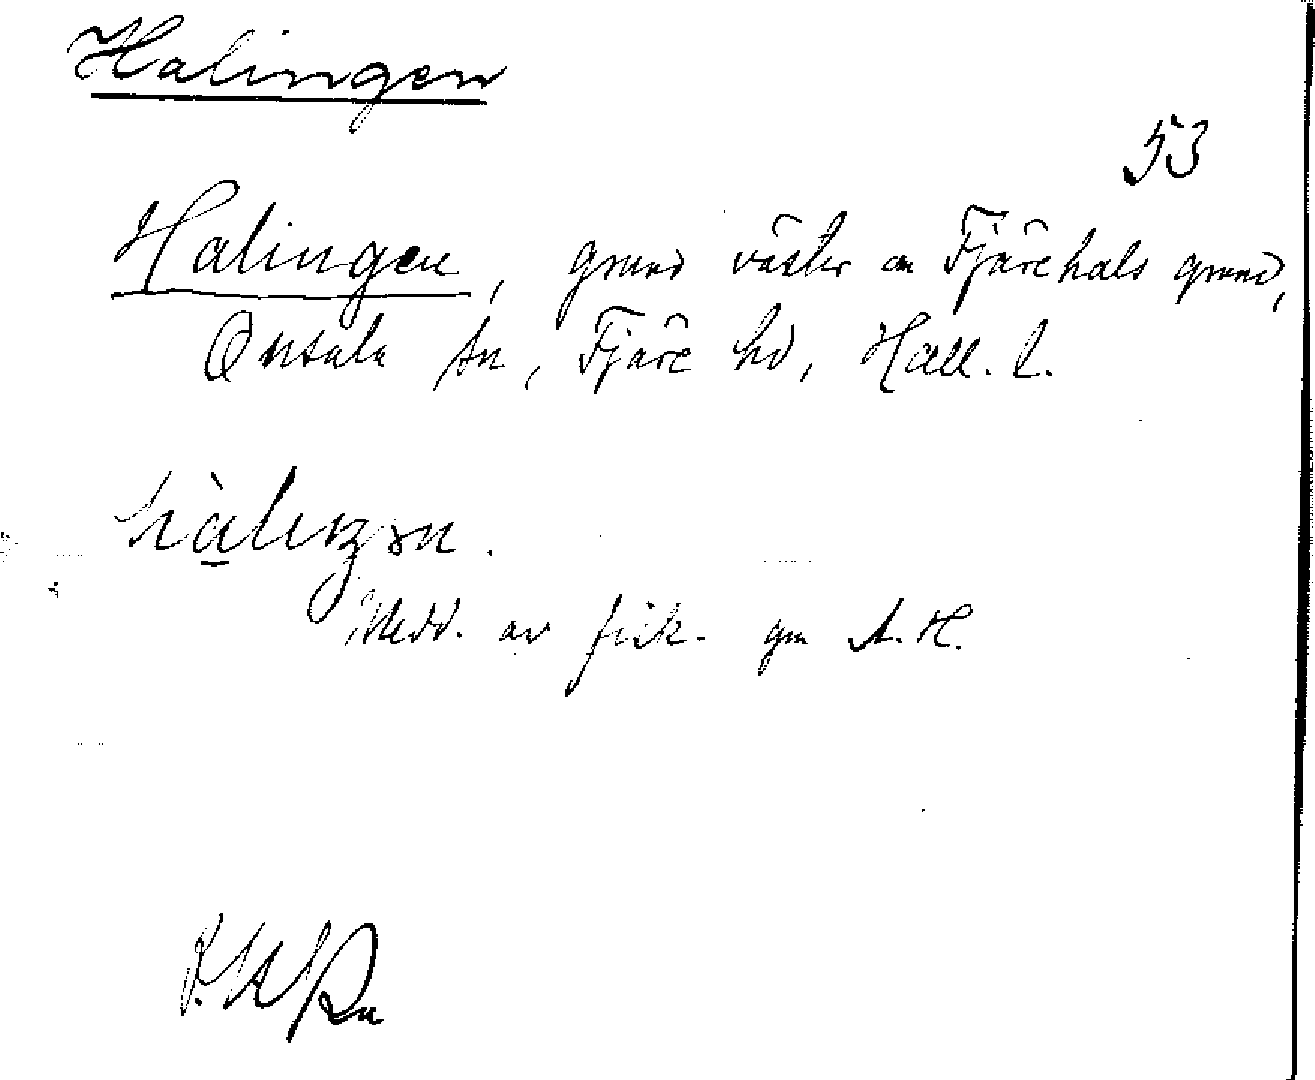 Halingen
53
Halingen, grund väster om Fjärehals grund,
Onsala sn, Fjäre hd, Hall. l.
Medd. av fisk. gm A. H.